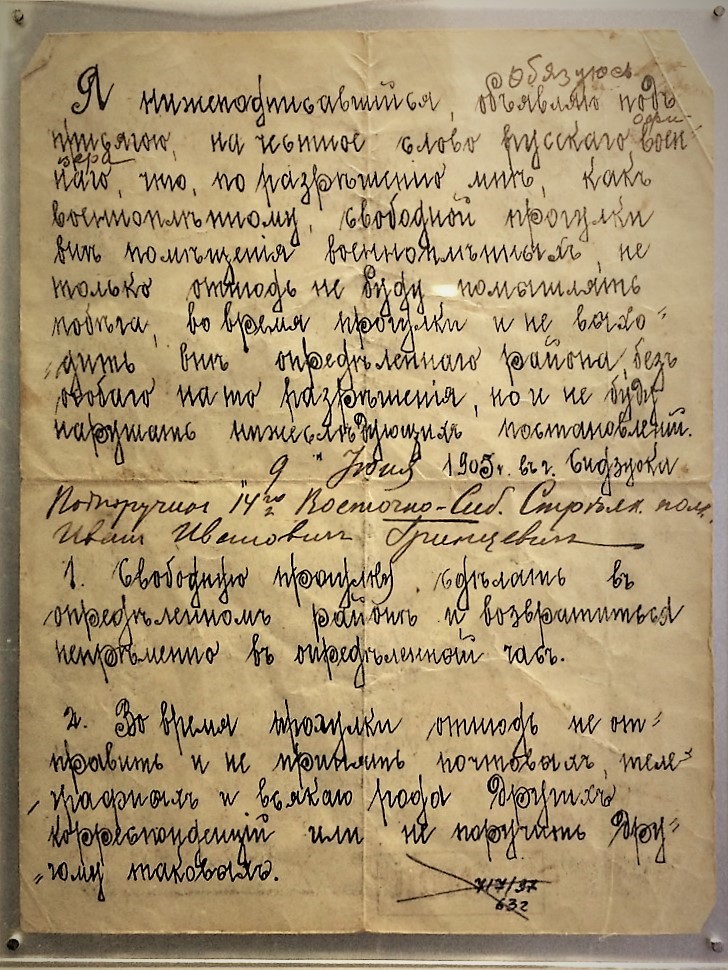 обязуюсь
Я нижеподписавшийся, объявляю подъ
присягою, на честное слово русскаго воен
офи-
цера
наго, что, по разрѣшенію мнѣ, какъ
военноплѣнному, свободной прогулки
внѣ помѣщенія военноплѣнныхъ, не
только отнюдь не буду помышлять
побѣга, во время прогулки и не выхо-
"дить внѣ опредѣленнаго района, безъ
особаго на то разрѣшенія, но и не буду
нарушать нижеслѣдующихъ постановленій.
9 " Іюня 1905 г. въ г. Сидзуока
Подпоручикъ 14го Восточно-Сиб. Стрѣлк. полка
Иванъ Ивановичъ Гринцевичъ
1. Свободную прогулку сдѣлать въ
опредѣленномъ районѣ и возвратиться
непрѣменно въ опредѣленной часъ.
2. Во время прохулки отнюдь не от"
править и не принять почтовыхъ, теле"
графныхъ и всякаго рода другихъ
корреспонденцій или не поручать дру"
"гому таковыхъ.
717/37
632